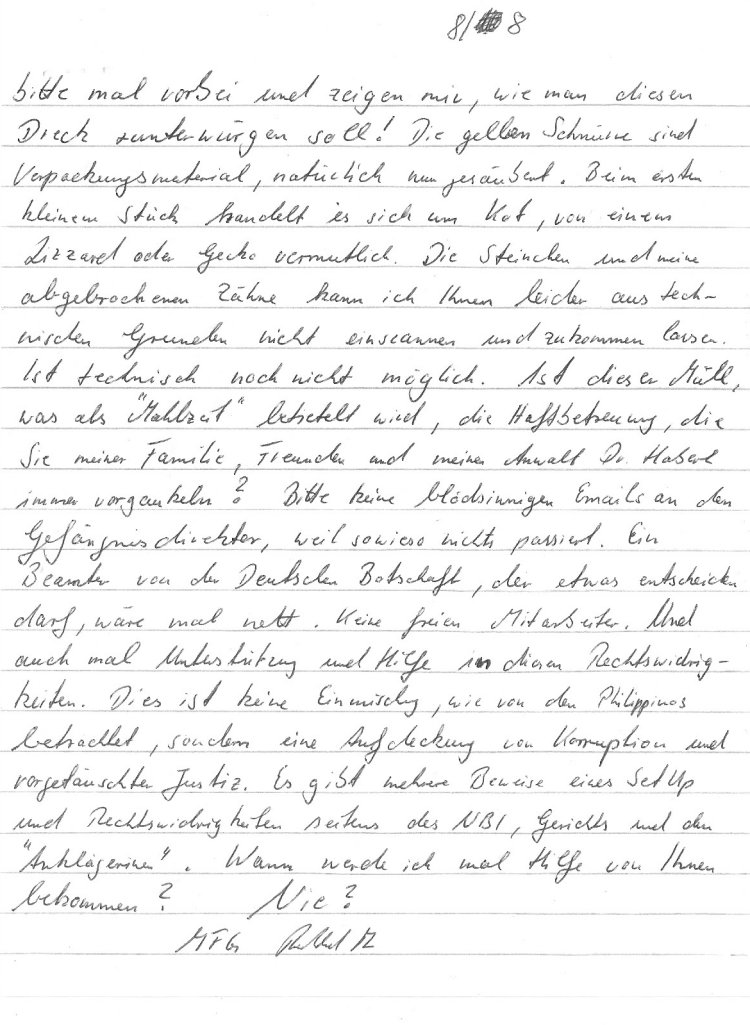 8/ 8
bitte mal vorbei und zeigen mir, wie man diesen
Dreck runterwürgen soll! Die gelben Schnüre sind
Verpackungsmaterial, natürlich nun gesäubert. Beim ersten
kleinem Stück handelt es sich um Kot, von einem
Lizzard oder Gecko vermutlich. Die Steinchen und meine
abgebrochenen Zähne kann ich Ihnen leider aus tech-
nischen Grunden nicht einscannen und zukommen lassen.
Ist technisch noch nicht möglich. Ist dieser Müll,
was als "Mahlzeit" betietelt wird, die Haftbetreuung, die
Sie meiner Familie, Freunden und meinen Anwalt Dr. Haberl
immer vorgaukeln? Bitte keine blödsinnigen Emails an den
Gefängnisdirektor, weil sowieso nichts passiert. Ein
Beamter von der Deutschen Botschaft, der etwas entscheiden
darf, wäre mal nett. Keine freien Mitarbeiter. Und
auch mal Unterstützung und Hilfe in diesen Rechtswidrig-
keiten. Dies ist keine Einmischung, wie von den Philippinos
betrachtet, sondern eine Aufdeckung von Korruption und
vorgetäuschten Justiz. Es gibt mehrere Beweise eines SetUp
und Rechtswidrigkeiten seitens des NBI, Gerichts und den
"Anklägerinen". Wann werde ich mal Hilfe von Ihnen
bekommen? Nie?
MFG